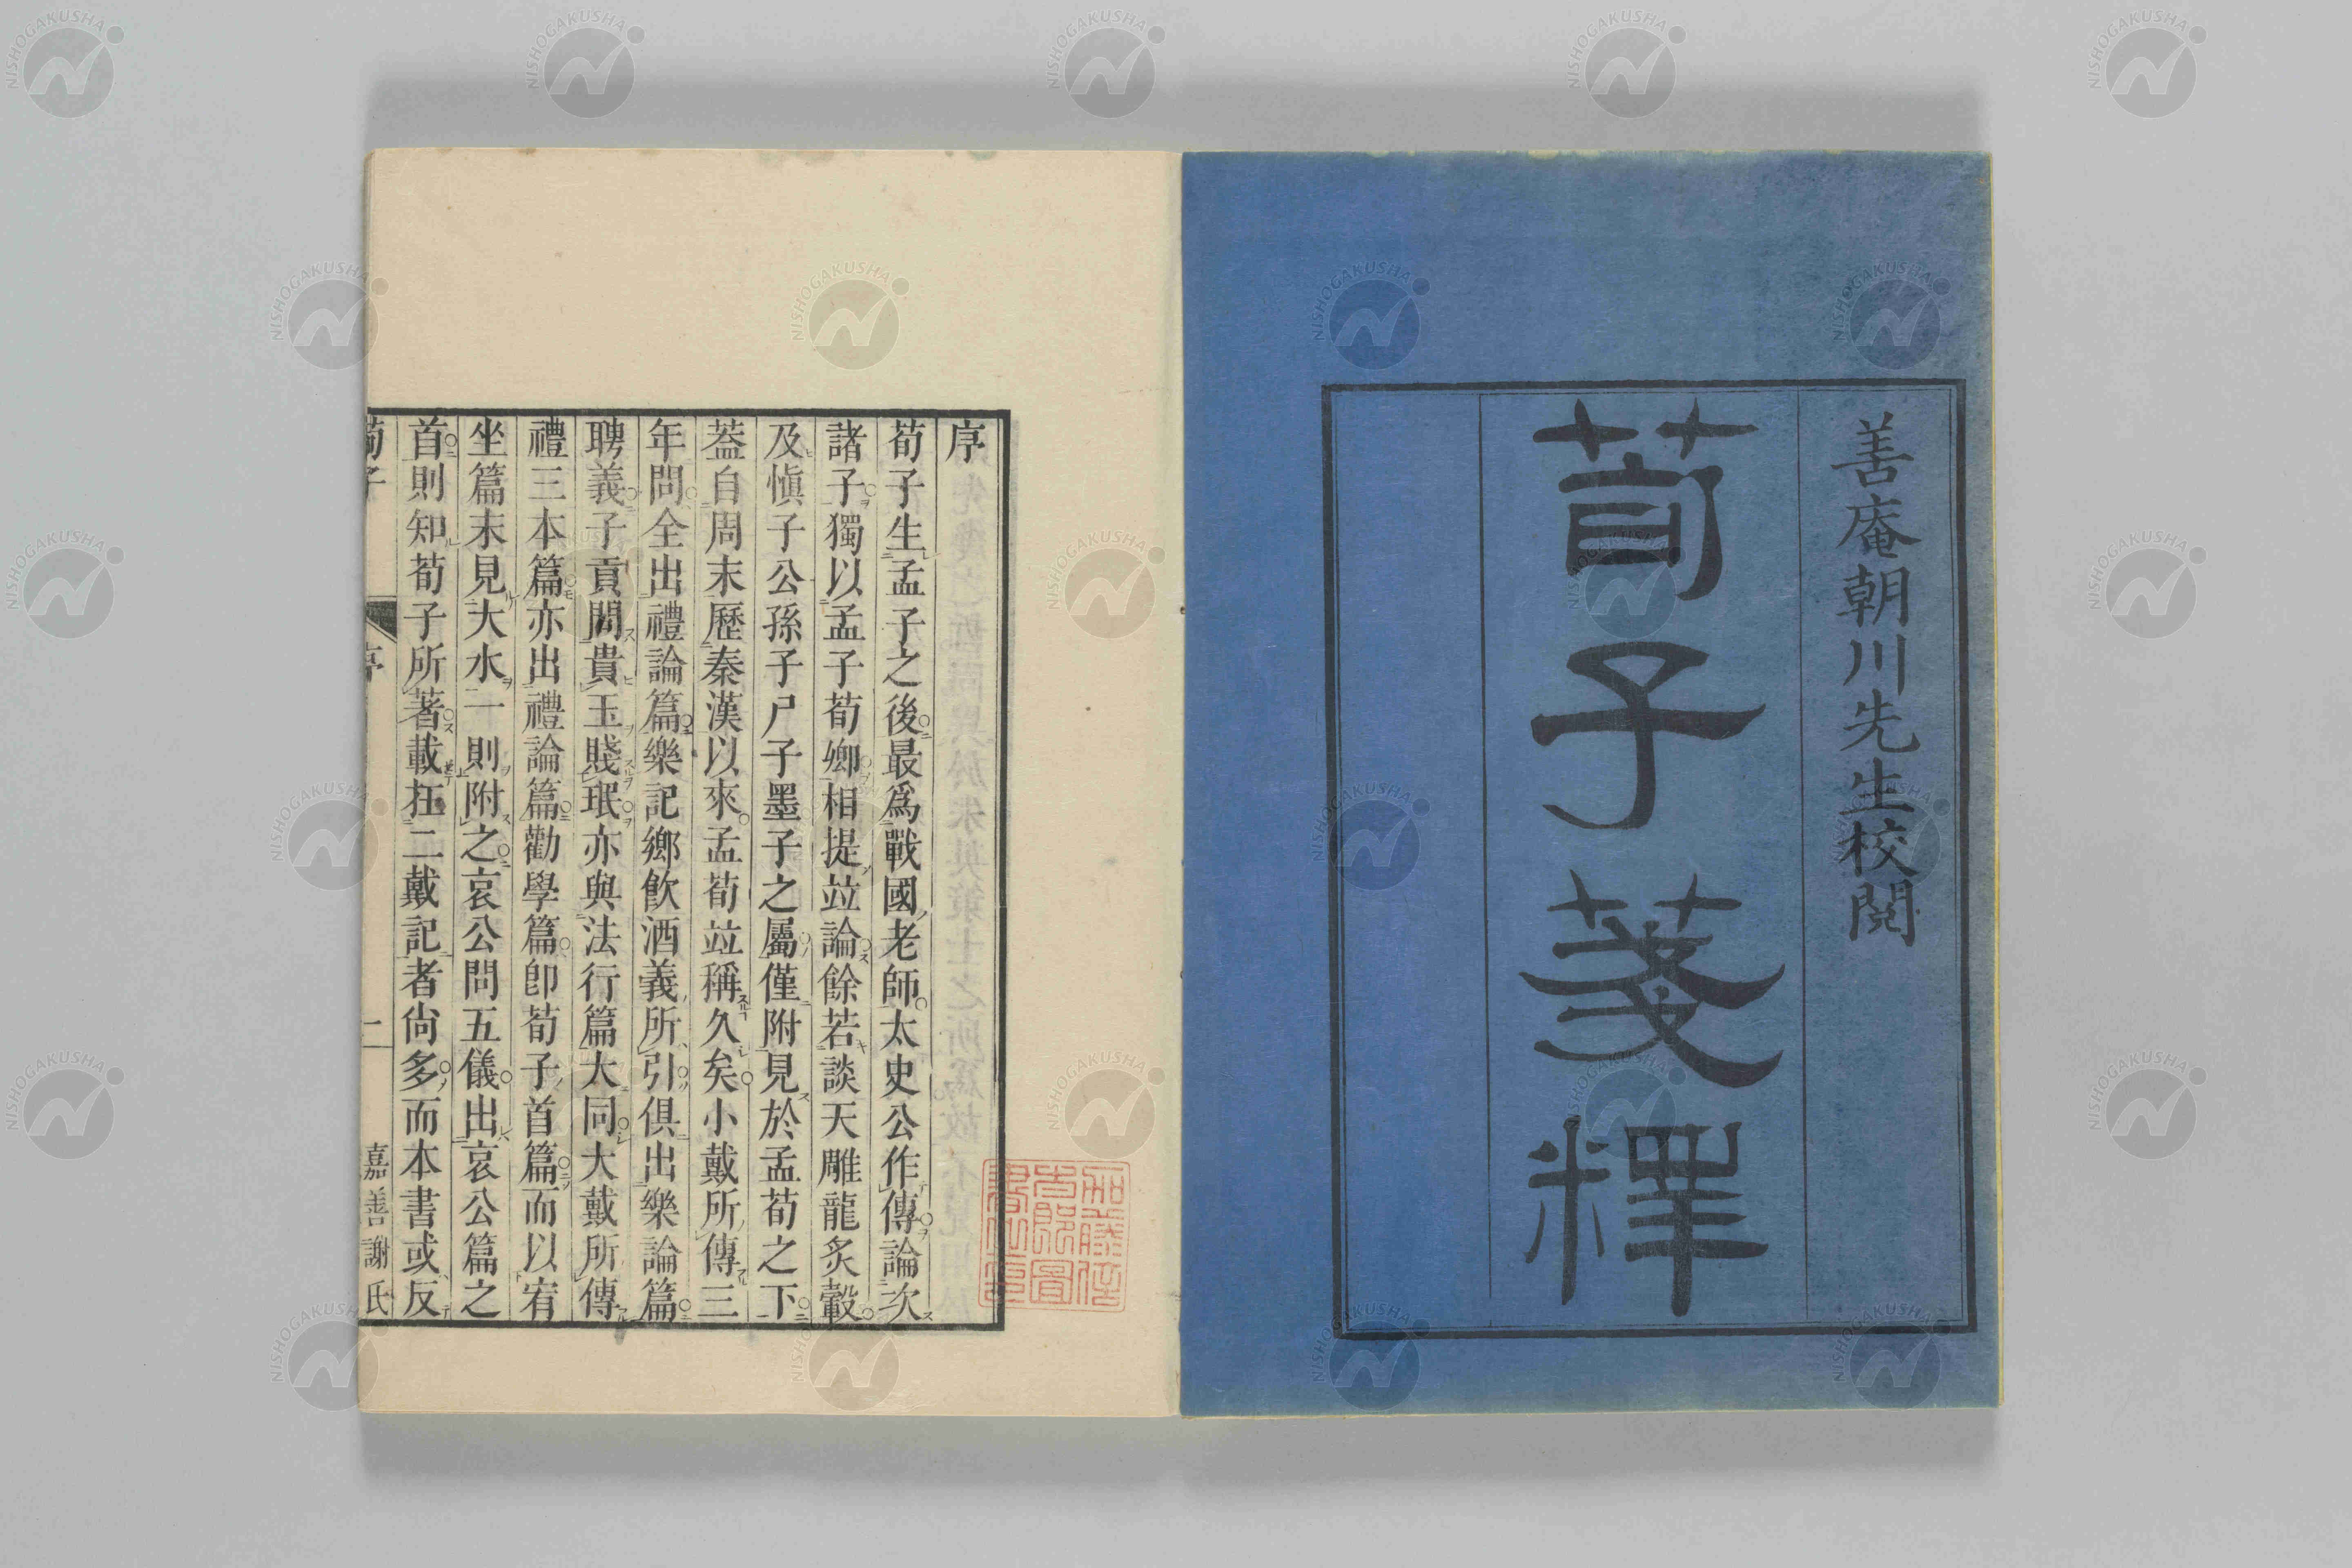 善庵朝川先生校閲
荀子箋釋
序
荀子生孟子之後最爲戰國老師太史公作傳論次
諸子獨以孟子荀卿相提竝論餘若談天雕龍炙轂
及愼子公孫子尸子墨子之屬僅附見於孟荀之下
葢自周末歷秦漢以來孟荀竝稱久矣小戴所傳三
年問全出禮論篇樂記鄉飮酒義所引俱出樂論篇
聘義子貢問貴玉賤珉亦與法行篇大同大戴所傳
禮三本篇亦出禮論篇勸學篇卽荀子首篇而以宥
坐篇末見大水一則附之哀公問五儀出哀公篇之
首則知荀子所著載在二戴記者尙多而本書或反
荀子
序
嘉善謝氏
NISHOGAKUSHA